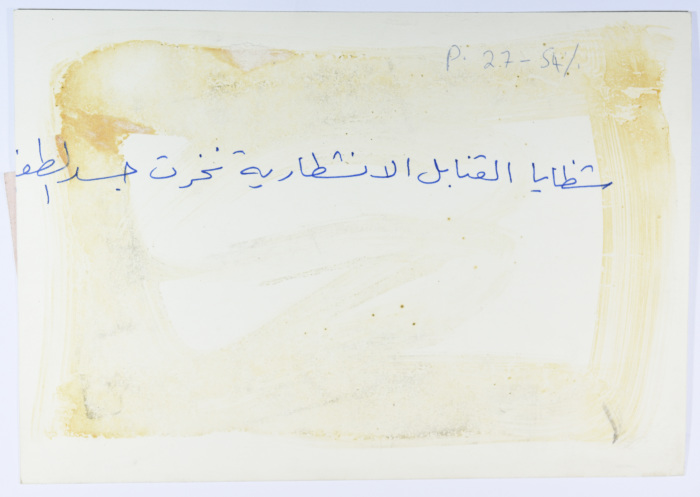 P. 27 - 54%
شظايا القنابل الانشطارية نخرت جسد الطف